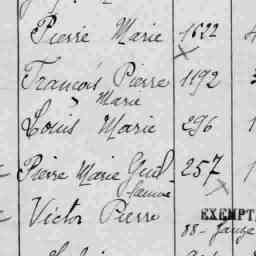 Pierre Marie 1632
François Pierre 1192
Marie
Louis Marie 296
Pierre Marie Guil- 257
laume
Victor Pierre EXEMPT
88- Jauge